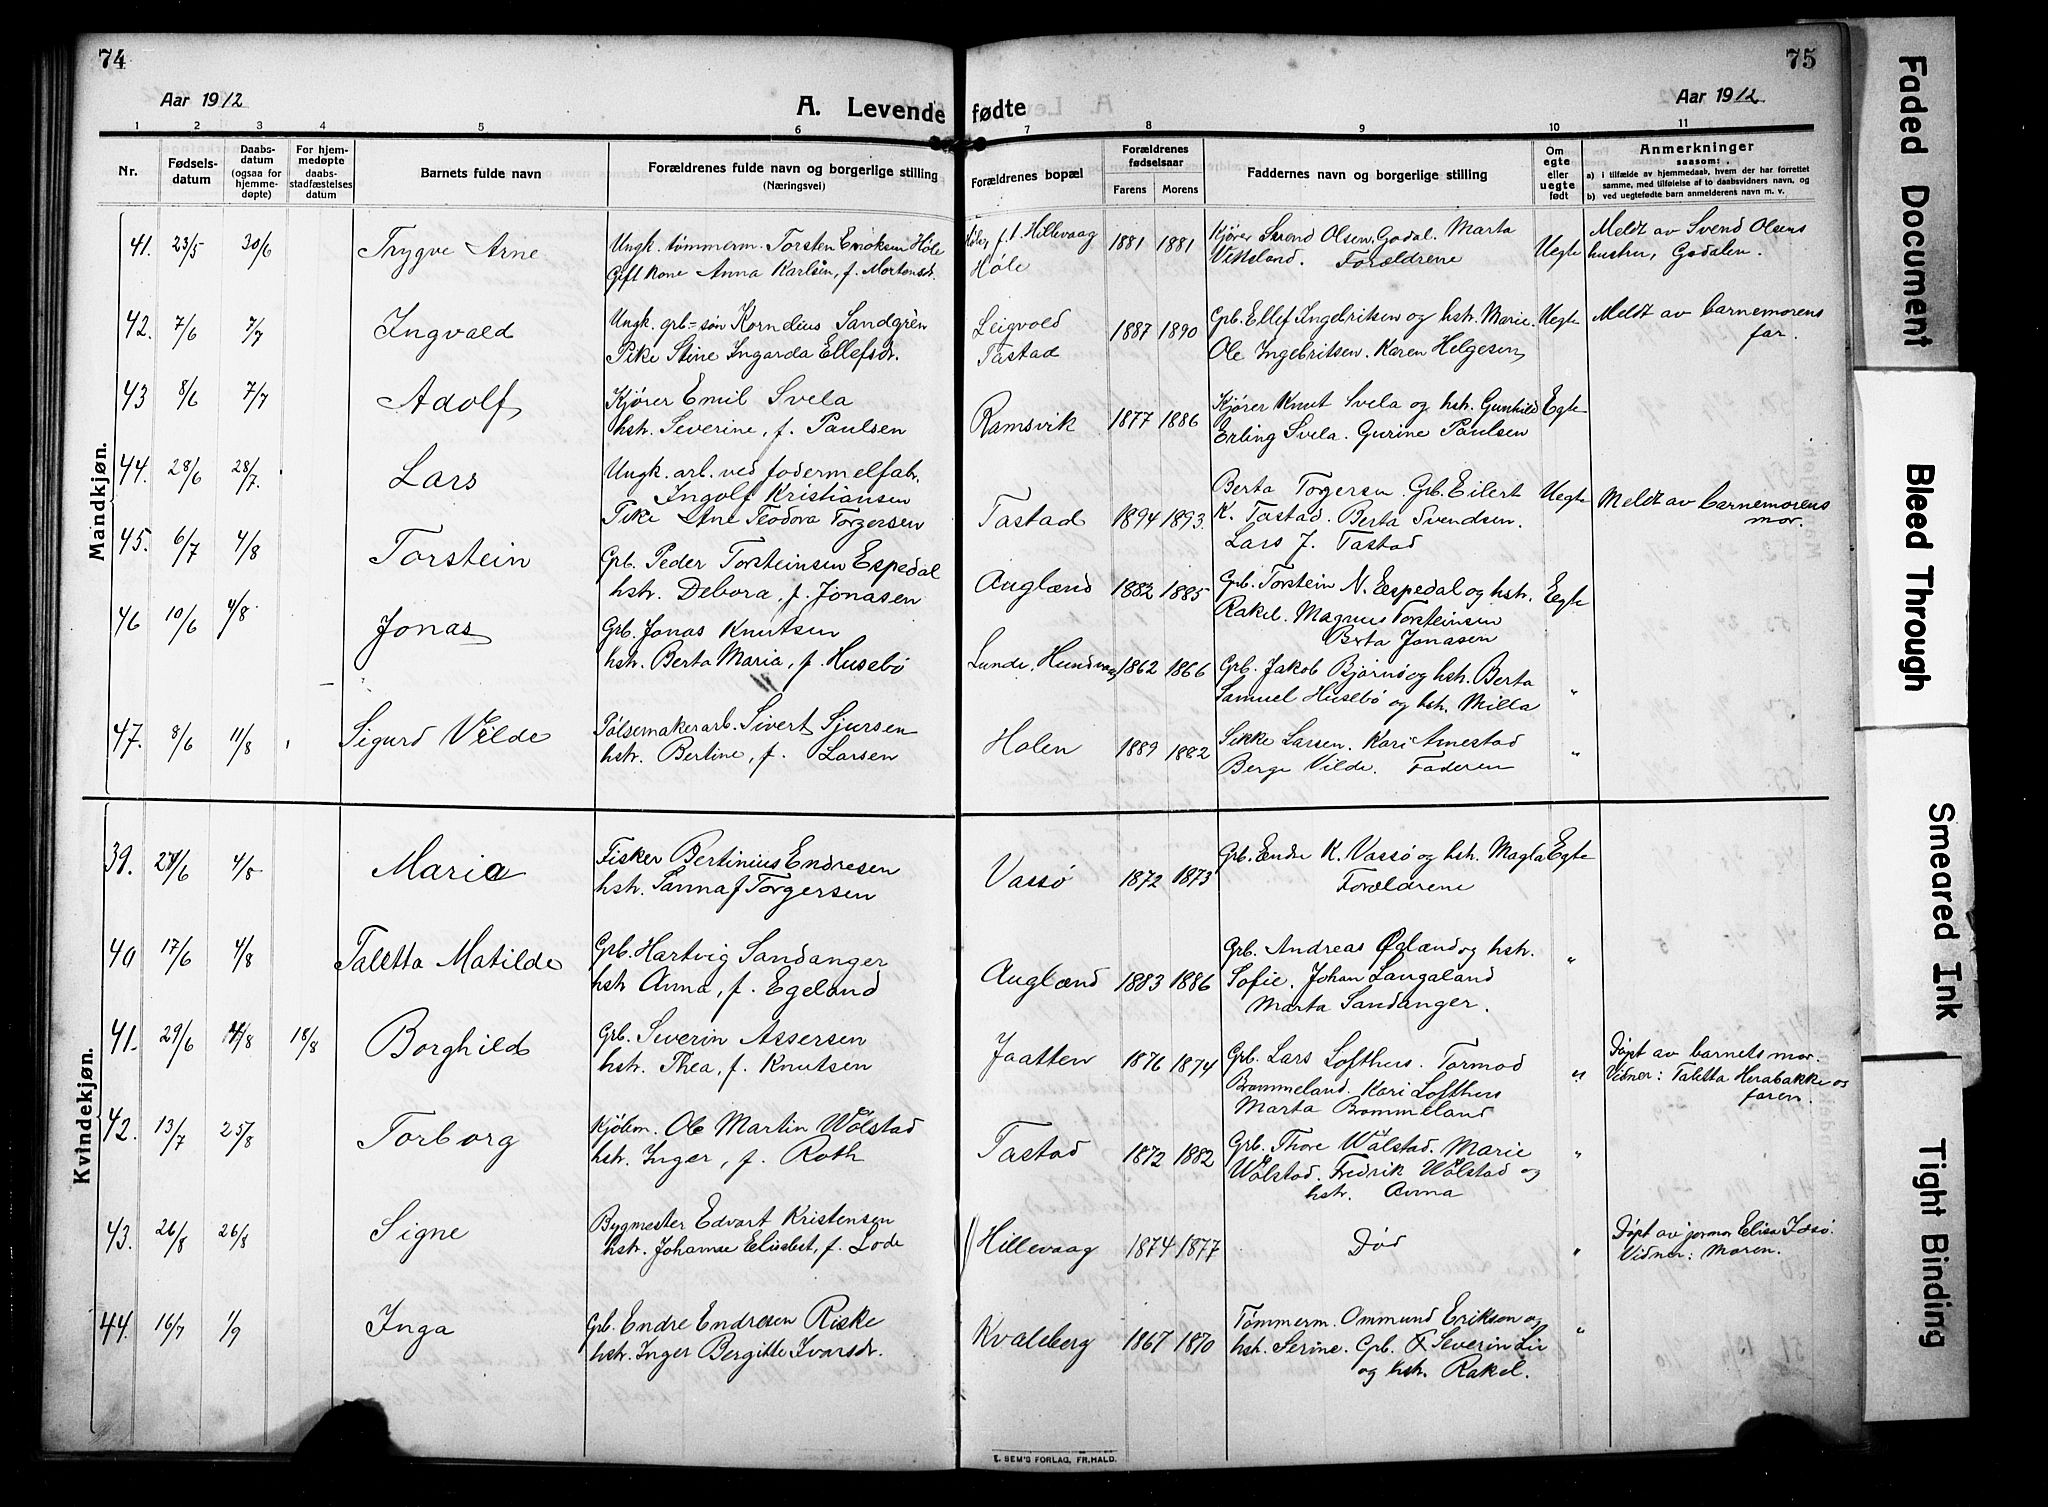 74
75
Aar 1912
A. Levende fødte
Aar 1912
1 2 3 4 5 6 7 8 9 10 11
Nr.
Fødsels-
datum
Daabs-
datum
(ogsaa for
hjemme-
døpte)
For hjem-
medøpte
daabs-
stadfæstelses
datum
Barnets fulde navn
Forældrenes fulde navn og borgerlige stilling
(Næringsvei)
Forældrenes bopæl
Forældrenes
fødselsaar
Farens
Morens
Faddernes navn og borgerlige stilling
Om
egte
eller
uegte
født
Anmerkninger
saasom:
a) i tilfælde av hjemmedaab, hvem der har forrettet
samme, med tilføielse af to daabsvidners navn, og
b) ved uegtefødte barn anmelderens navn m. v.
Mandkjøn.
41. 23/5 30/6 Trygve Arne
Ungk. tømmerm. Torsten Enoksen Høle
Gift kone Anna Karlsen, f. Mortensdr.
Hillevaag
Høle
1881 1881
Kjører Svend Olsen, Godal. Marta
Vetteland. Forældrene
Uegte
Meldt av Svend Olsens
hustru, Godalen.
42. 7/6 7/7 Ingvald
Ungk. grb-søn Kornelius Sandgren
Pike Stine Ingarda Ellefsdr.
Leigvold
Tastad
1887 1890
Grb. Ellef Ingebritsen og hst. Marie.
Ole Ingebritsen. Karen Helgesen
Uegte
Meldt av barnemorens
far.
43 8/6 7/7 Adolf
Kjører Emil Svela
hstr. Severine, f. Paulsen
Ramsvik
1877 1886
Kjører Knut Svela og hst. Gunhild
Erling Svela. Gurine Paulsen
Egte
44. 28/6 28/7. Lars
Ungk. arb. ved fodermelfabr.
Ingolf Kristiansen
Pike Ane Teodora Torgersen
Tastad
1894 1893.
Berta Torgersen. Grb. Eilert
K. Tastad. Berta Svendsen.
Lars J. Tastad
Uegte
Meldt av barnemorens
mor.
45. 6/7 4/8 Torstein
Grb. Peder Torsteinsen Espedal
hstr. Debora, f. Jonasen
Auglænd
1882 1885
Grb. Torstein N. Espedal og hstr.
Rakel. Magnus Torsteinsen
Berta Jonasen
Egte
46 10/6 4/8. Jonas
Grb. Jonas Knutsen
hstr. Berta Maria, f. Husebø
Lunde, Hundvaag
1862 1866
Grb. Jakob Bjørnø og hst. Berta
Samuel Husebø og hst. Milla
"
47. 8/6 11/8 Sigurd Vilde
Pølsemakerarb. Sivert Sjursen
hstr. Bertine, f. Larsen
Holen
1889 1882
Sikke Larsen. Kari Arnestad
Berge Vilde. Faderen
"
Kvindekjøn.
39. 24/6 4/8 Maria
Fisker Bertinius Endresen
hstr. Sanna f Torgersen
Vassø
1872 1873
Grb. Endre K. Vassø og hst. Magla
Forældrene
Egte
40 17/6 4/8 Taletta Matilde
Grb. Hartvig Sandanger
hstr Anna, f. Egeland
Auglænd
1883 1886
Grb. Andreas Øglænd og hstr.
Sofie. Johan Laugaland
Marta Sandanger.
"
41. 29/6 /8 18/8 Borghild
Grb. Severin Assersen
hstr. Thea, f. Knutsen
Jaatten
1876 1874
Grb. Lars Lofthus. Tormod
Bømmeland. Kari Lofthus
Marta Bømmeland
"
Døpt av barnets mor.
Vidner: Taletta Herabakke og
faren.
42. 13/7 25/8 Torborg
Kjøbm. Ole Martin Wølstad
hstr. Inger, f. Roth
Tastad
1872 1882
Grb. Thore Wølstad. Marie
Wølstad. Fredrik Wølstad og
hstr. Anna
"
43. 26/8 26/8 Signe
Bygmester Edvart Kristensen
hstr. Johanne Elisabet, f. Lode
Hillevaag
1874 1877
Død
"
Døpt av jormor Elisa Idsø.
Vidner: Moren.
44. 16/7 1/9 Inga
Grb. Endre Endresen Riske
hstr. Inger Bergitte Ivarsdr.
Kvaleberg
1867 1870
Tømmerm. Ommund Erikson og
hst. Serine. Grb. Severin Liv
og hst. Rakel.
"
E. SEM'S FORLAG, FR.HALD.
Faded Document
Bleed Through
Smeared Ink
Tight Binding